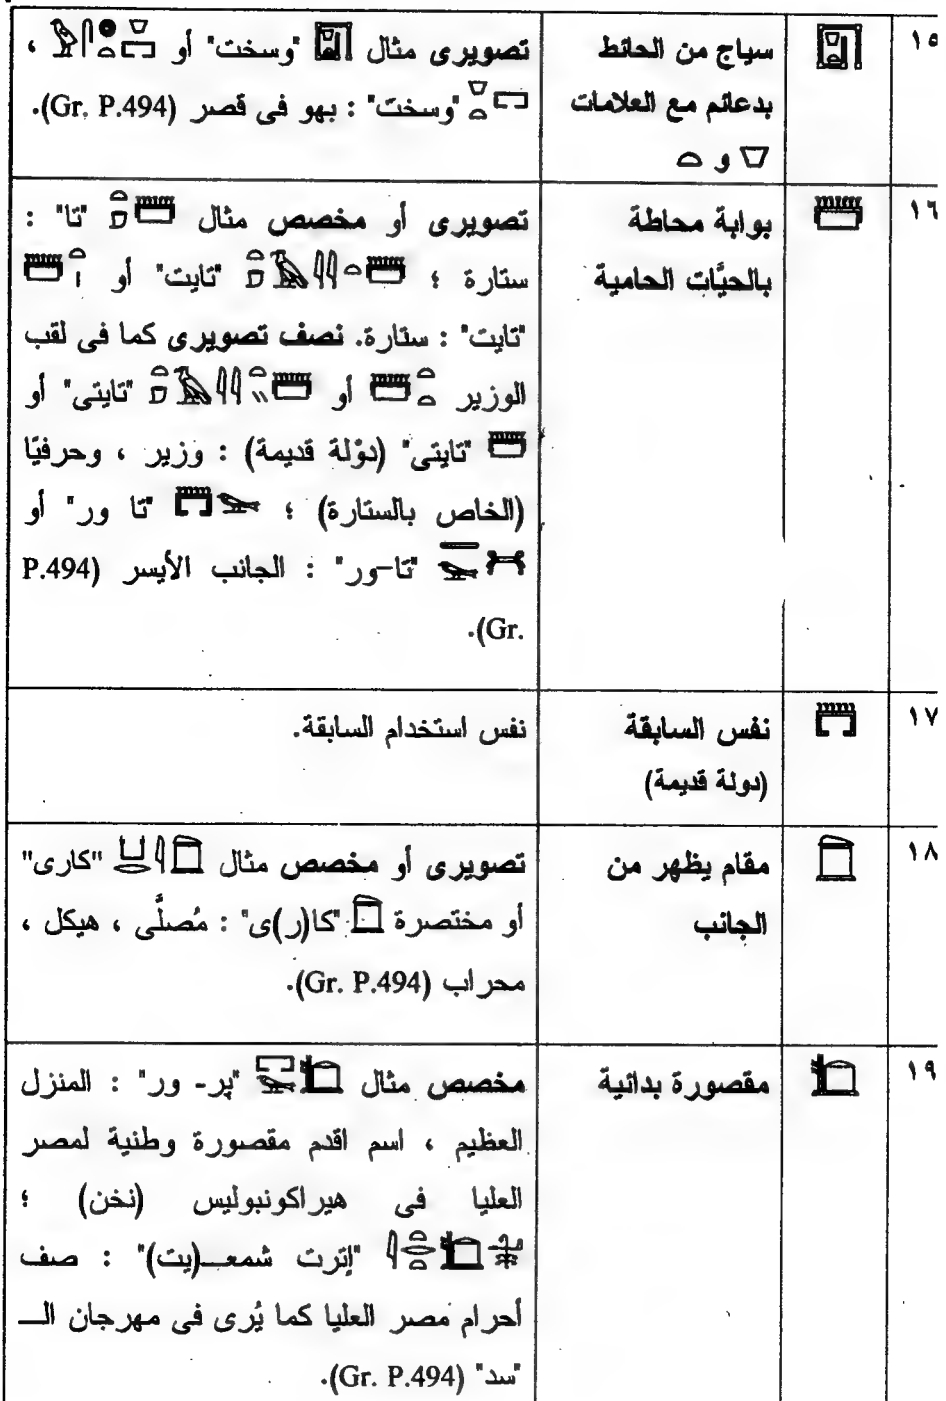 ١٥ سياج من الحائط تصويرى مثال "وسخت" أو ،
بدعائم مع العلامات "وسخت" : بهو فى قصر (Gr. P.494).
و
١٦ بوابة محاطة تصويرى أو مخصص مثال "تا" :
بالحيَّات الحامية ستارة ؛ "تايت" أو
"تايت" : ستارة. نصف تصويرى كما فى لقب
الوزير أو "تايتى" أو
"تايتى" (دوْلة قديمة) : وزير ، وحرفيًا
(الخاص بالستارة) ؛ "تا ور" أو
"تا-ور" : الجانب الأيسر (P.494
Gr.).
١٧ نفس السابقة نفس استخدام السابقة.
(دولة قديمة)
١٨ مقام يظهر من تصويرى أو مخصص مثال "كارى"
الجانب أو مختصرة "كا(ر)ى" : مُصلَّى ، هيكل ،
محراب (Gr. P.494).
١٩ مقصورة بدائية مخصص مثال "پر- ور" : المنزل
العظيم ، اسم اقدم مقصورة وطنية لمصر
العليا فى هيراكونبوليس (نخن) ؛
"إترت شمعـ(يت)" : صف
أحرام مصر العليا كما يُرى فى مهرجان الـ
"سد" (Gr. P.494).